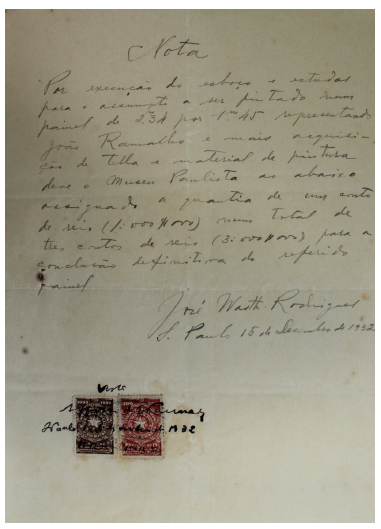 Nota
Por execução do esboço e estudos
para o assumpto a ser pintado num
painel de 2.34 por 1.m45 representando
João Ramalho e mais acquisi-
ção de tella e material de pintura
deve o Museu Paulista ao abaixo
assignado a quantia de um conto
de reis (1:000$000) num total de
tres contos de reis (3:000$000) para a
conclusão definitiva do referido
painel
José Wasth Rodrigues
S. Paulo 15 de Dezembro de 1932
Visto
S Paulo de 1932